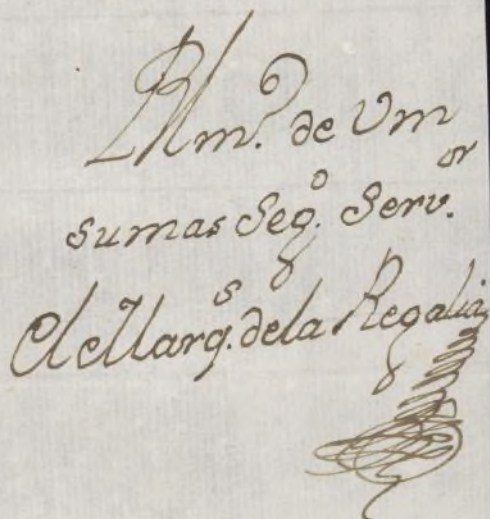 BLm.º de Vm
sumas Seg.º Serv.or
El Marq.s de la Regalia